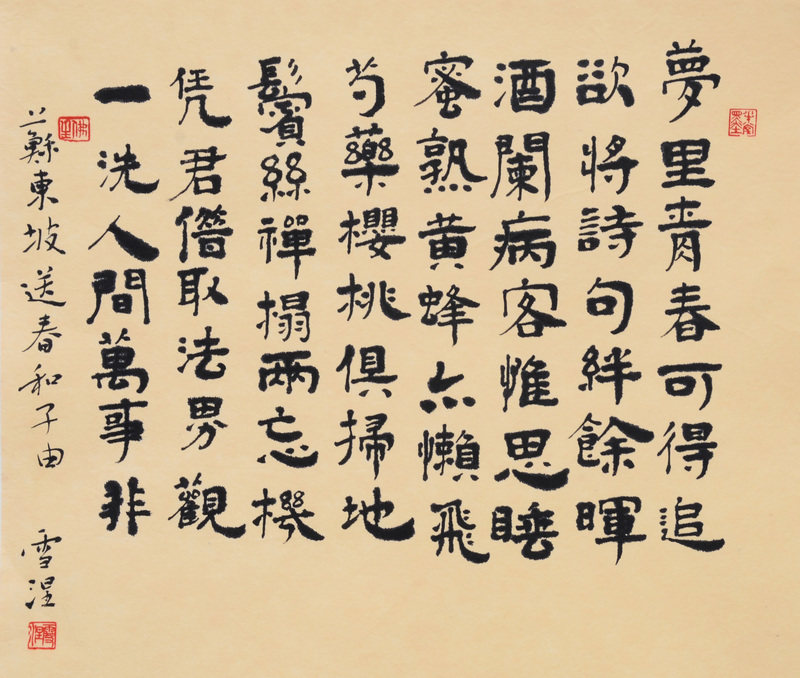 夢里青春可得追
欲将詩句絆餘暉
酒闌病客惟思睡
蜜熟黄蜂亦懶飛
芍藥櫻桃俱掃地
鬢絲禪榻兩忘機
凭君借取法界觀
一洗人間萬事非
蘇東坡送春和子由 雪涅